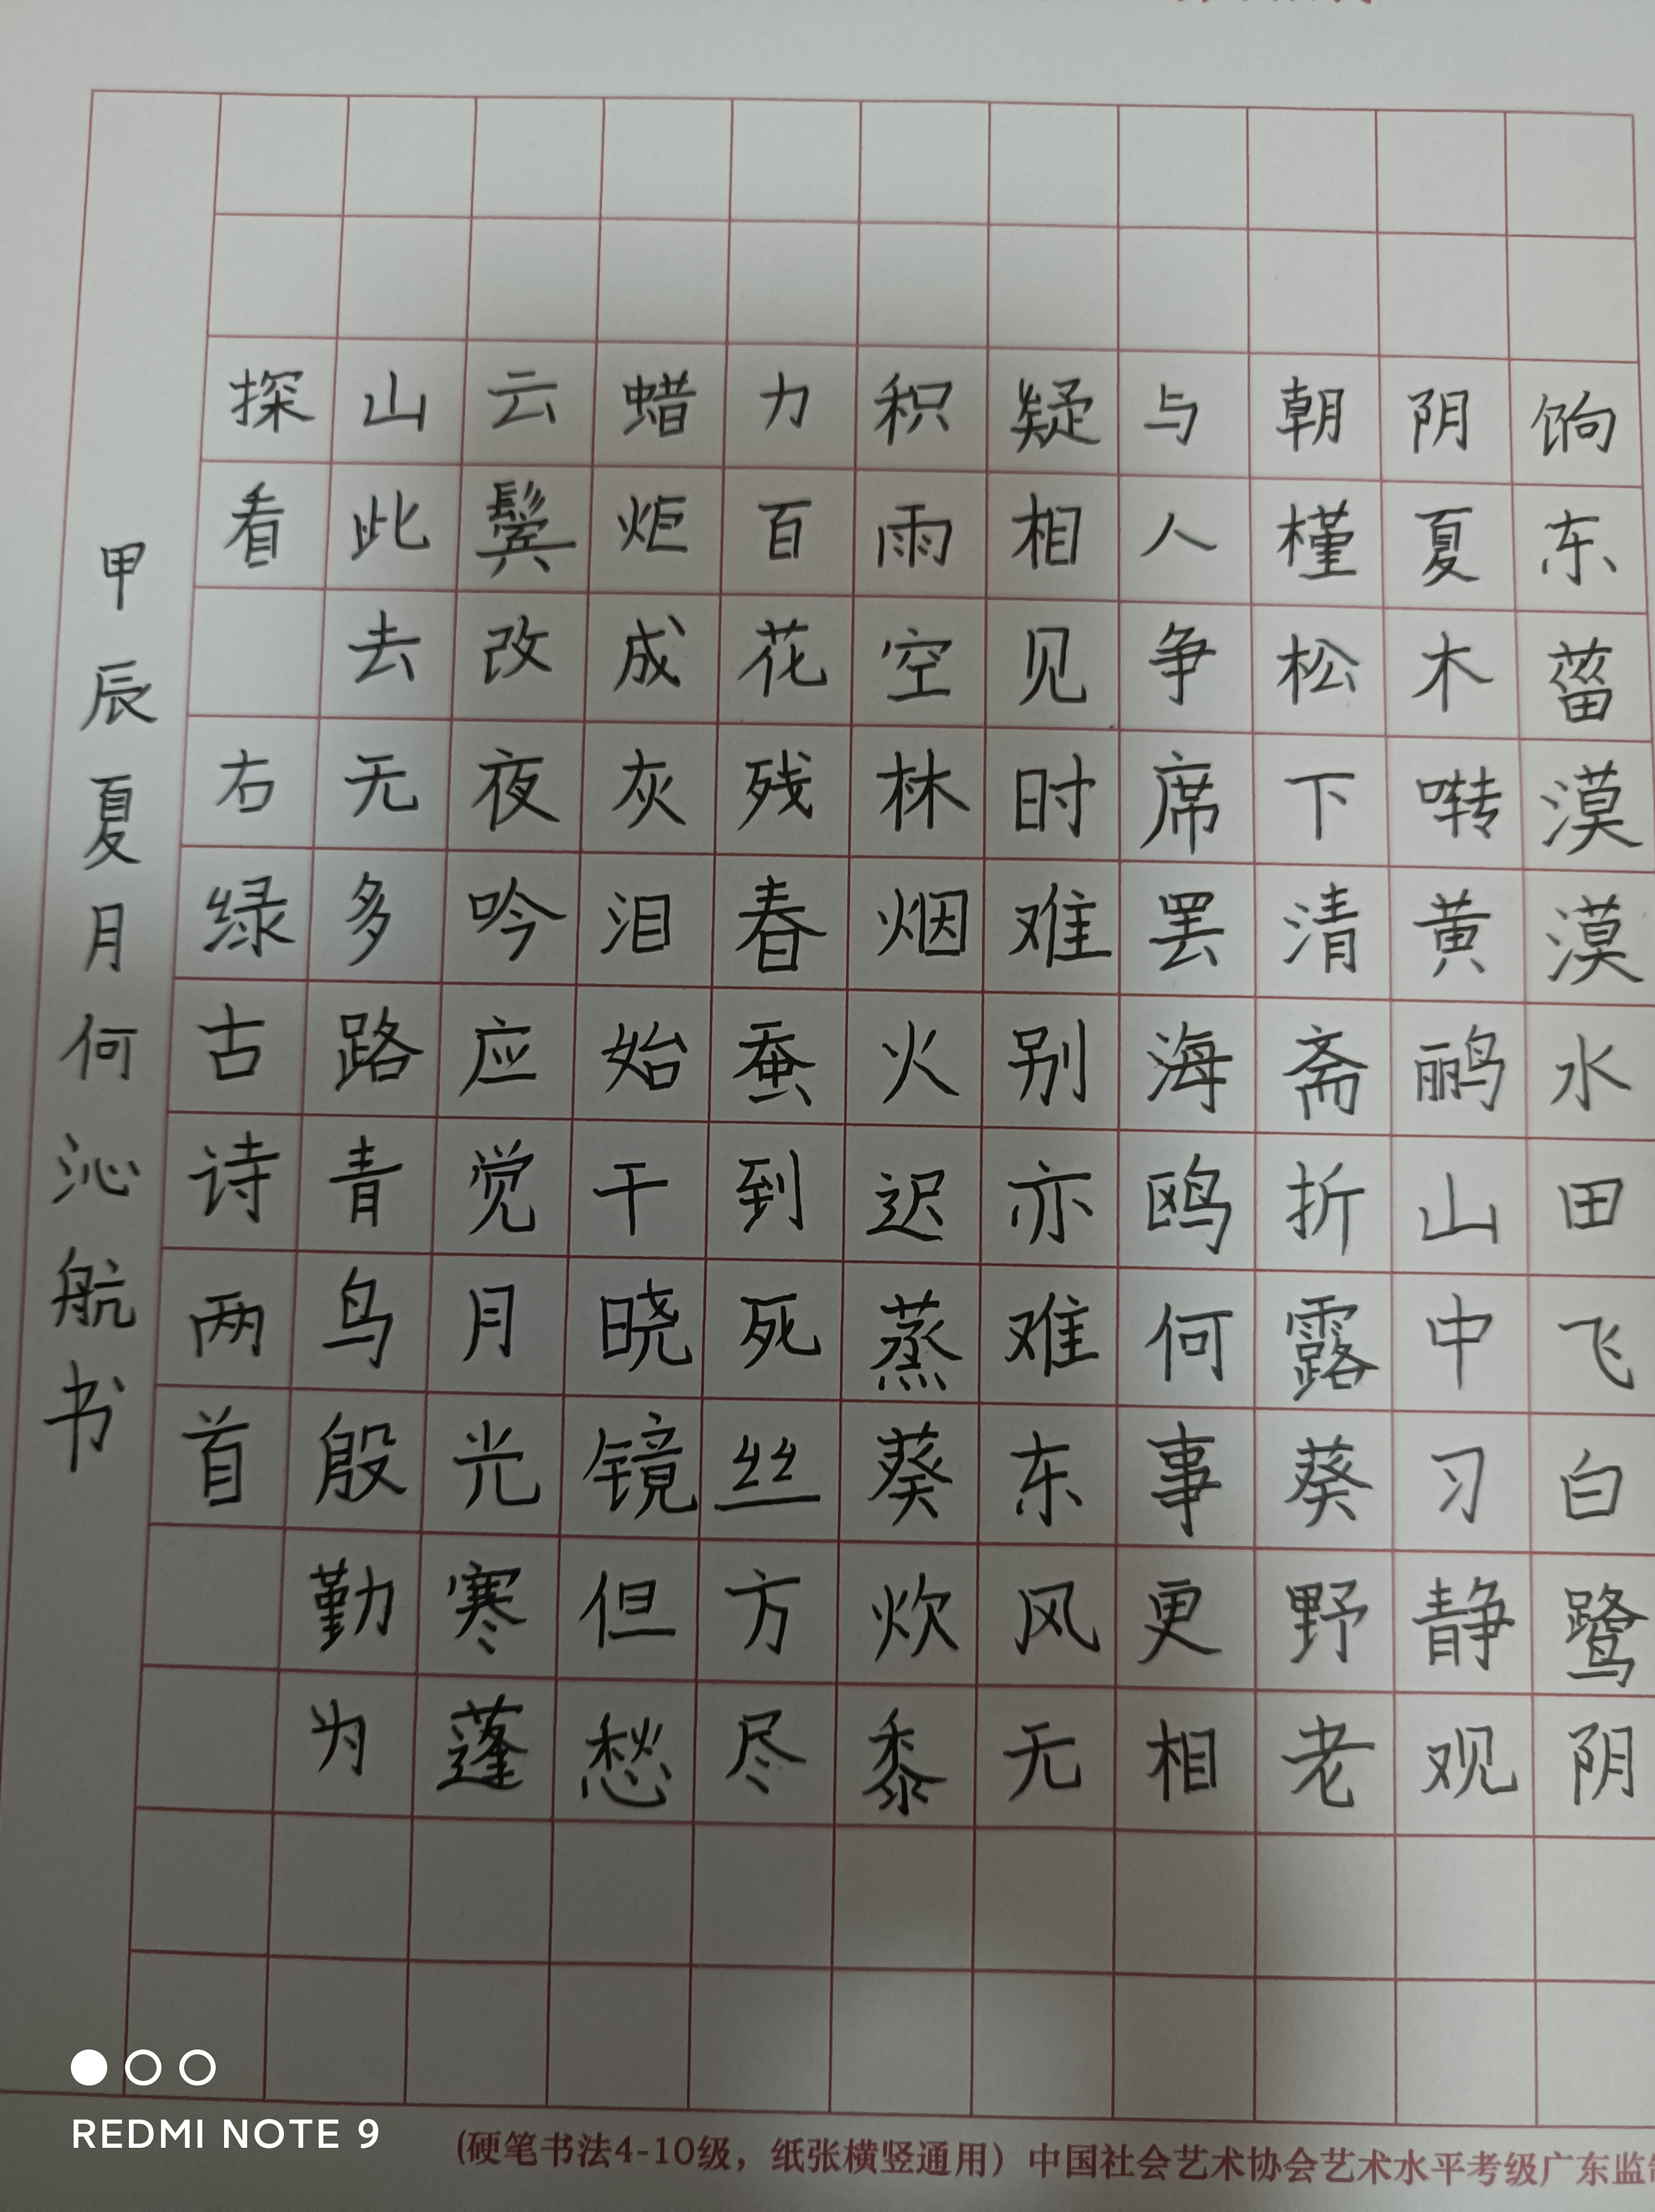 饷东菑漠漠水田飞白鹭阴
阴夏木啭黄鹂山中习静观
朝槿松下清斋折露葵野老
与人争席罢海鸥何事更相
疑相见时难别亦难东风无
积雨空林烟火迟蒸葵炊黍
力百花残春蚕到死丝方尽
蜡炬成灰泪始干晓镜但愁
云鬓改夜吟应觉月光寒蓬
山此去无多路青鸟殷勤为
探看 右绿古诗两首
甲辰夏月何沁航书
REDMI NOTE 9
(硬笔书法4-10级，纸张横竖通用）中国社会艺术协会艺术水平考级广东监